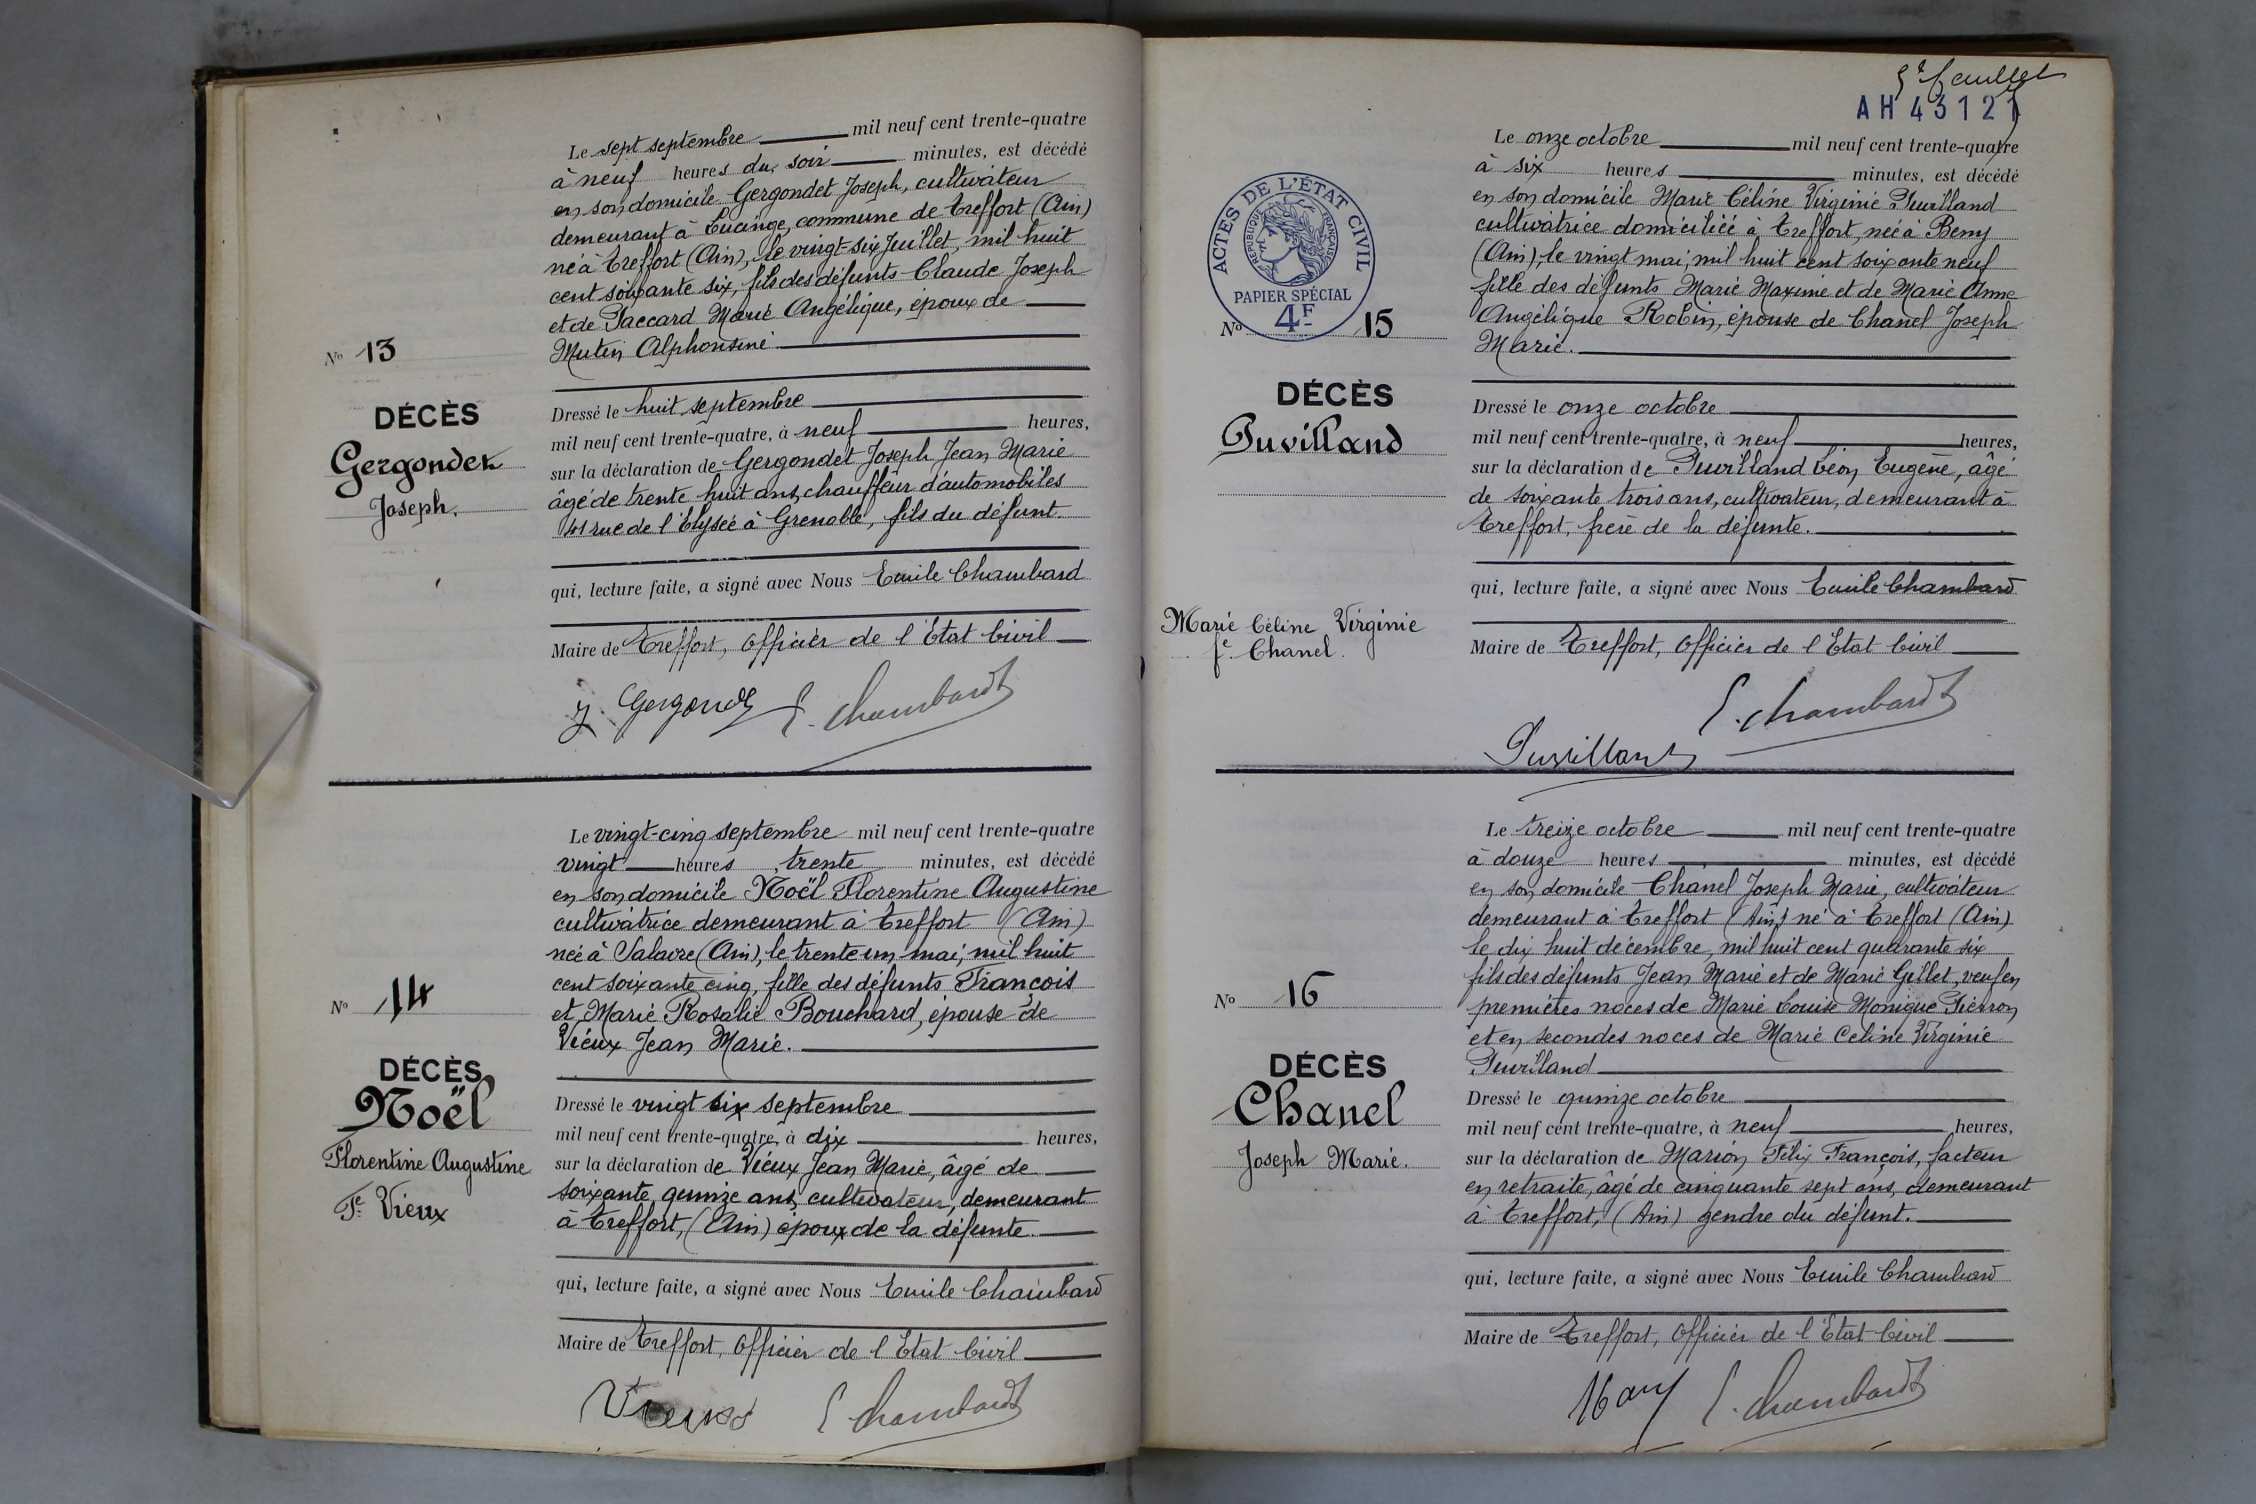 Le sept septembre mil neuf cent trente-quatre
à neuf heures du soir minutes, est décédé
en son domicile Gergondet Joseph, cultivateur
demeurant à Lucinge, commune de Treffort (Ain)
né à Treffort (Ain), le vingt-six Juillet, mil huit
cent soixante six, fils des défunts Claude Joseph
et de Paccard Marie Angélique, époux de
Mutin Alphonsine
N° 13
DÉCÈS
Gergondet
Joseph.
Dressé le huit septembre
mil neuf cent trente-quatre, à neuf heures,
sur la déclaration de Gergondet Joseph Jean Marie
âgé de trente huit ans, chauffeur d'automobiles
41 rue de l'Elysée à Grenoble, fils du défunt.
qui, lecture faite, a signé avec Nous Emile Chambard
Maire de Treffort, Officier de l'Etat Civil
J. Gergondet E. Chambard
Le vingt-cinq septembre mil neuf cent trente-quatre
vingt heures trente minutes, est décédé
en son domicile Noël Florentine Augustine
cultivatrice demeurant à Treffort (Ain)
née à Salavre (Ain), le trente un mai, mil huit
cent soixante cinq, fille des défunts François
et Marie Rosalie Bouchard, épouse de
Vieux Jean Marie.
N° 14
DÉCÈS
Noël
Florentine Augustine
Fe Vieux
Dressé le vingt six septembre
mil neuf cent trente-quatre, à dix heures,
sur la déclaration de Vieux Jean Marie, âgé de
soixante quinze ans, cultivateur, demeurant
à Treffort, (Ain) époux de la défunte.
qui, lecture faite, a signé avec Nous Emile Chambard
Maire de Treffort, Officier de l'Etat Civil
Vieux E. Chambard
5e feuillet
AH 43121
Le onze octobre mil neuf cent trente-quatre
à six heures minutes, est décédé
en son domicile Marie Céline Virginie Puvilland
cultivatrice domiciliée à Treffort, née à Beny
(Ain), le vingt mai, mil huit cent soixante neuf
fille des défunts Marie Maxime et de Marie Anne
Angélique Robin, épouse de Chanel Joseph
Marie.
ACTES DE L'ÉTAT CIVIL
REPUBLIQUE FRANÇAISE
PAPIER SPÉCIAL
4F
N° 15
DÉCÈS
Puvilland
Marie Céline Virginie
fe Chanel.
Dressé le onze octobre
mil neuf cent trente-quatre, à neuf heures,
sur la déclaration de Puvilland Léon Eugène, âgé
de soixante trois ans, cultivateur, demeurant à
Treffort, frère de la défunte.
qui, lecture faite, a signé avec Nous Emile Chambard
Maire de Treffort, Officier de l'Etat Civil
E. Chambard
Puvilland
Le treize octobre mil neuf cent trente-quatre
à douze heures minutes, est décédé
en son domicile Chanel Joseph Marie, cultivateur
demeurant à Treffort (Ain) né à Treffort (Ain)
le dix huit décembre, mil huit cent quarante six
fils des défunts Jean Marie et de Marie Gillet, veuf en
premières noces de Marie Louise Monique Piévron
et en secondes noces de Marie Celine Virginie
Puvilland
N° 16
DÉCÈS
Chanel
Joseph Marie.
Dressé le quinze octobre
mil neuf cent trente-quatre, à neuf heures,
sur la déclaration de Marion Félix François, facteur
en retraite, âgé de cinquante sept ans, demeurant
à Treffort, (Ain) gendre du défunt.
qui, lecture faite, a signé avec Nous Emile Chambard
Maire de Treffort, Officier de l'Etat Civil
E. Chambard